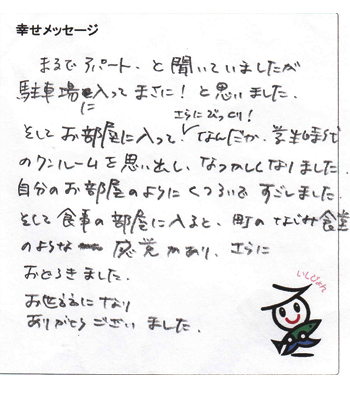 幸せメッセージ
まるでアパート、と聞いていましたが
駐車場に入ってまさに！と思いました。
さらにびっくり！
そしてお部屋に入って！なんだか、学生時代
のワンルームを思い出し、なつかしくなりました
自分のお部屋のようにくつろいですごしました。
そして食事の部屋に入ると、町のなじみ食堂
のような 感覚があり、さらに
おどろきました。
お世話になり
ありがとうございました。